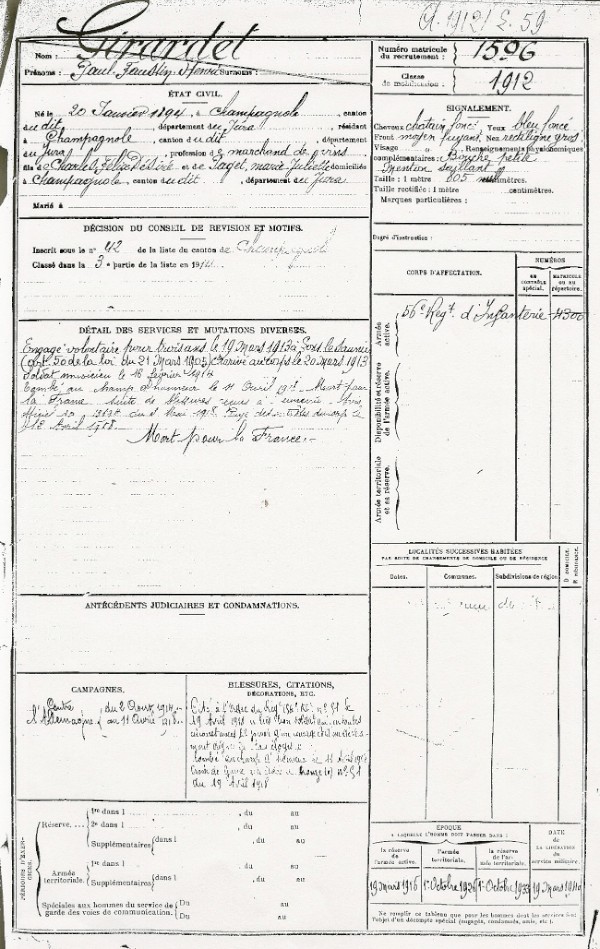 Cl. 1912 / E. 59
Nom : Girardet
Prénoms : Paul Faustin Henri Surnoms :
Numéro matricule
du recrutement : 1596
Classe
de mobilisation : 1912
ÉTAT CIVIL.
Né le 20 Janvier 1894, à Champagnole, canton
du dit, département du Jura, résidant
à Champagnole, canton du dit, département
du Jura, profession de marchand de vins
fils de Charles Félix Désiré et de Paget, Marie Juliette domiciliés
à Champagnole, canton du dit, département du Jura
Marié à
SIGNALEMENT.
Cheveux chatain foncé Yeux bleu foncé
Front moyen fuyant Nez rectiligne gros
Visage Renseignements physionomiques
complémentaires : Bouche petite
Menton saillant
Taille : 1 mètre 605
Taille rectifiée : 1 mètre centimètres.
Marques particulières :
Degré d'instruction :
DÉCISION DU CONSEIL DE RÉVISION ET MOTIFS.
Inscrit sous le n° 42 de la liste du canton de Champagnole
Classé dans la 3e partie de la liste en 1914
CORPS D'AFFECTATION.
NUMÉROS
AU CONTRÔLE SPÉCIAL.
MATRICULE OU AU RÉPERTOIRE.
Armée active.
56e Regt. d'Infanterie 4300
Disponibilité et réserve de l'armée active.
Armée territoriale et sa réserve.
DÉTAIL DES SERVICES ET MUTATIONS DIVERSES.
Engagé volontaire pour trois ans le 19 Mars 1913 à Lons le Saunier
(art. 50 de la loi du 21 Mars 1905) Arrivé au corps le 20 mars 1913
Soldat musicien le 18 février 1914
Tombé au champ d'honneur le 11 Avril 1918 Mort pour
la France suite de blessures
Mai 1918. Rayé des contrôles du corps le
12 Avril 1918
Mort pour la France.
LOCALITÉS SUCCESSIVES HABITÉES
PAR SUITE DE CHANGEMENTS DE DOMICILE OU DE RÉSIDENCE
Dates. Communes. Subdivisions de région. D domicile. R résidence.
ANTÉCÉDENTS JUDICIAIRES ET CONDAMNATIONS.
CAMPAGNES.
Contre l'Allemagne du 2 Aout 1914
au 11 Avril 1918
BLESSURES, CITATIONS,
DÉCORATIONS, ETC.
Cité à l'Ordre du Regt (56e RI) n° 91 le
19 Avril 1918 Très bon soldat en toutes
circonstances
digne d'éloges
tombé au champ d'honneur le 11 Avril 1918
Croix de Guerre (étoile de bronze) n° 91
du 19 Avril 1918
PÉRIODES D'EXERCICES.
Réserve.
1re dans l , du au
2e dans l , du au
Supplémentaires dans l , du au
, du au
Armée territoriale.
1re dans l , du au
Supplémentaires dans l , du au
, du au
Spéciales aux hommes du service de
garde des voies de communication.
Du au
Du au
ÉPOQUE
À LAQUELLE L'HOMME DOIT PASSER DANS :
la réserve de l'armée active.
l'armée territoriale.
la réserve de l'armée territoriale.
DATE DE LA LIBÉRATION du service militaire.
19 mars 1916 1er Octobre 1926 1er Octobre 1933 19 Mars 1940
Ne remplir ce tableau que pour les hommes dont les services font
l'objet d'un décompte spécial (engagés, condamnés, omis, etc.).